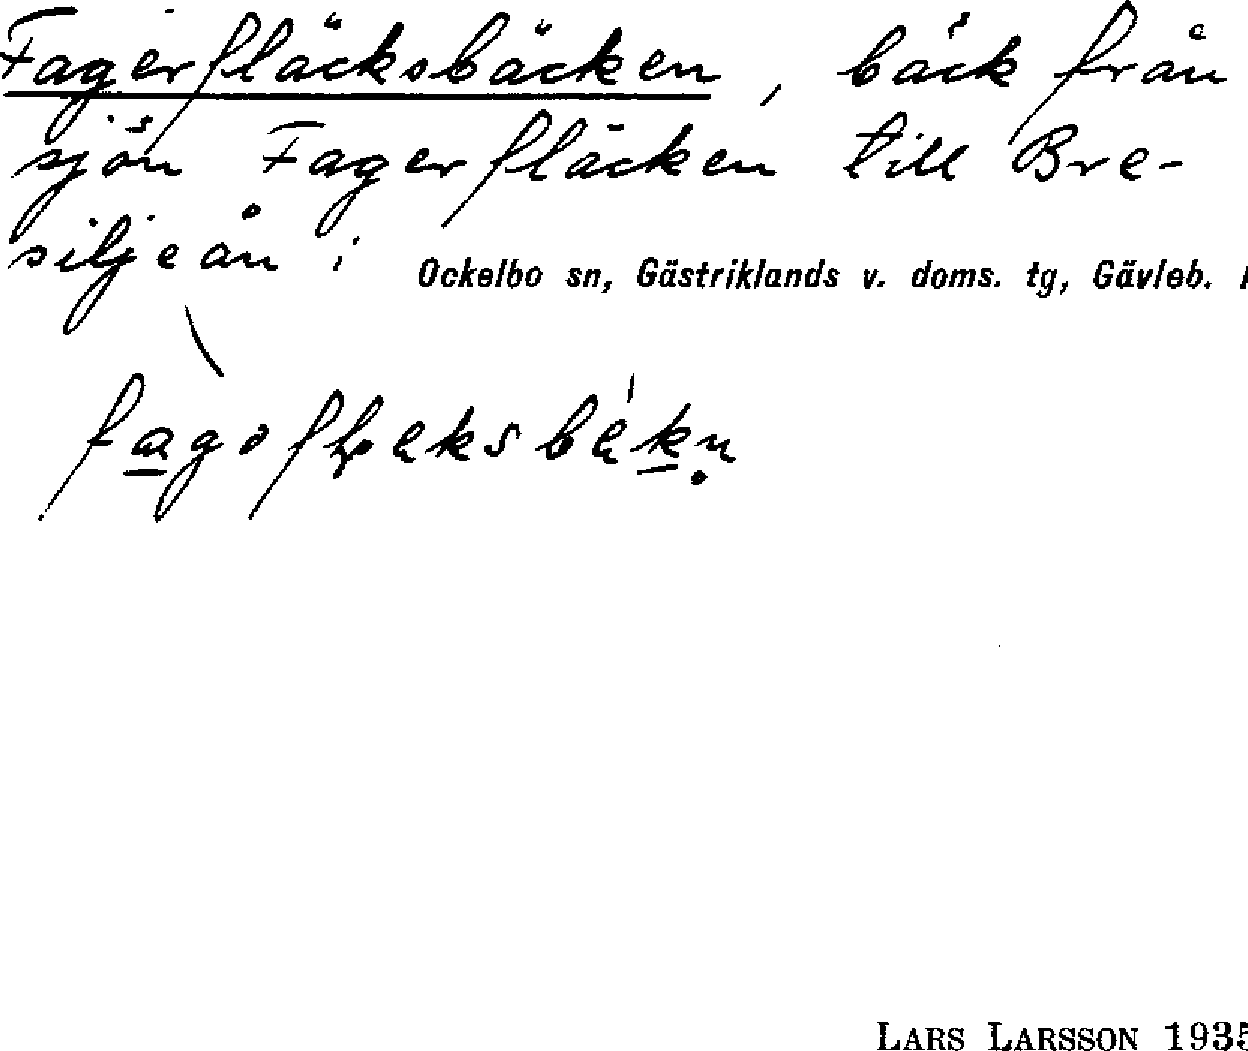 Fagerfläcksbäcken, bäck från
sjön Fagerfläcken till Bre-
siljeån i Ockelbo sn, Gästriklands v. doms. tg, Gävleb. l
LARS LARSSON 1935